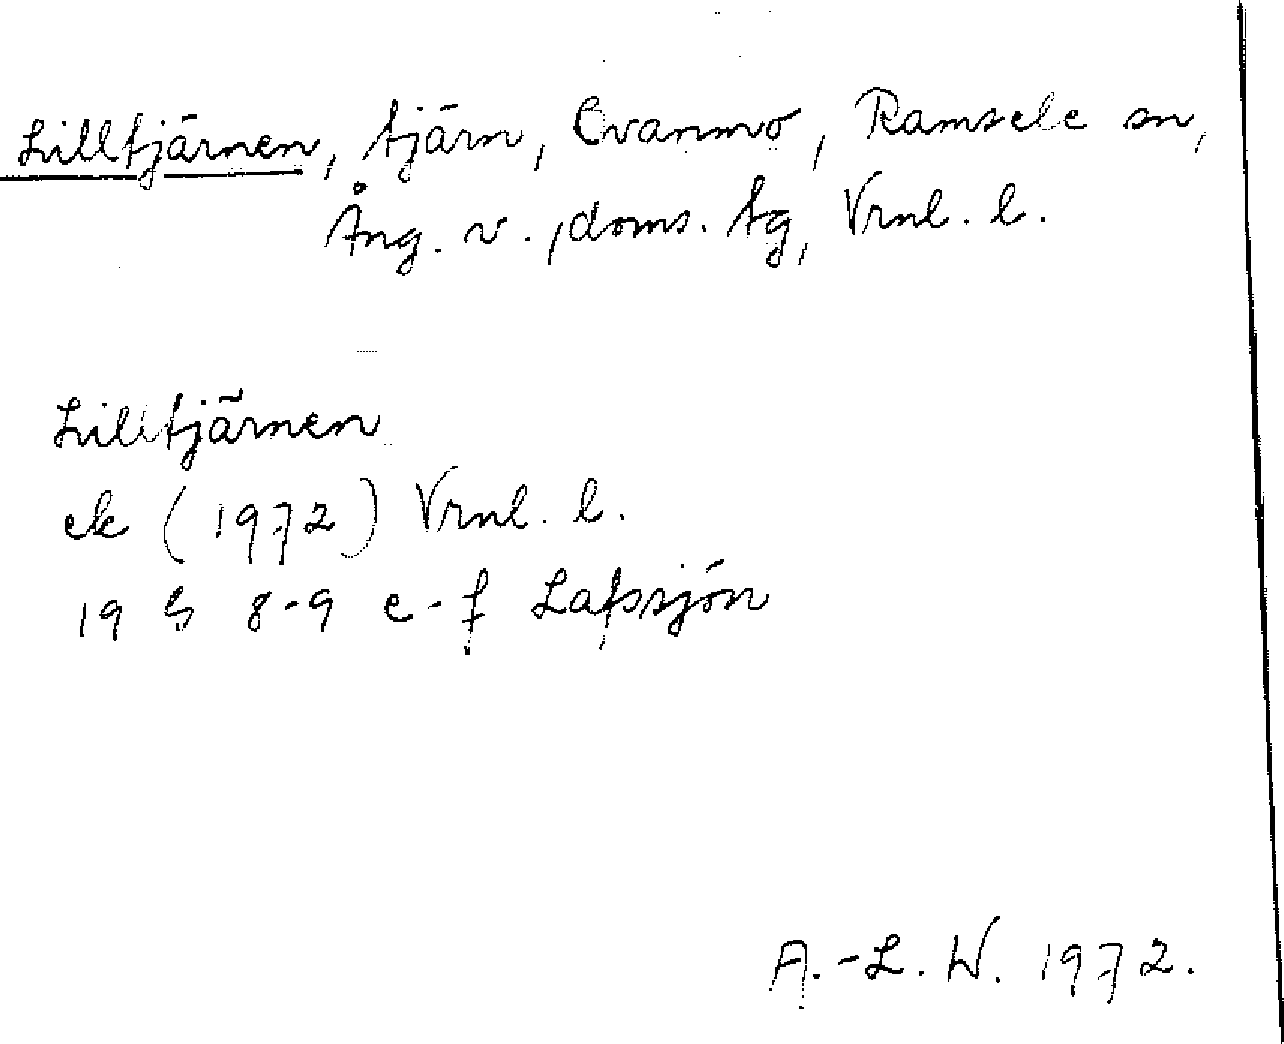 Lilltjärnen, tjärn, Ovanmo, Ramsele sn,
Ång. v., doms. tg, Vrnl. l.
Lilltjärnen
ek (1972) Vrnl. l.
19 G 8-9 e-f Lafssjön
A.-L. W. 1972.